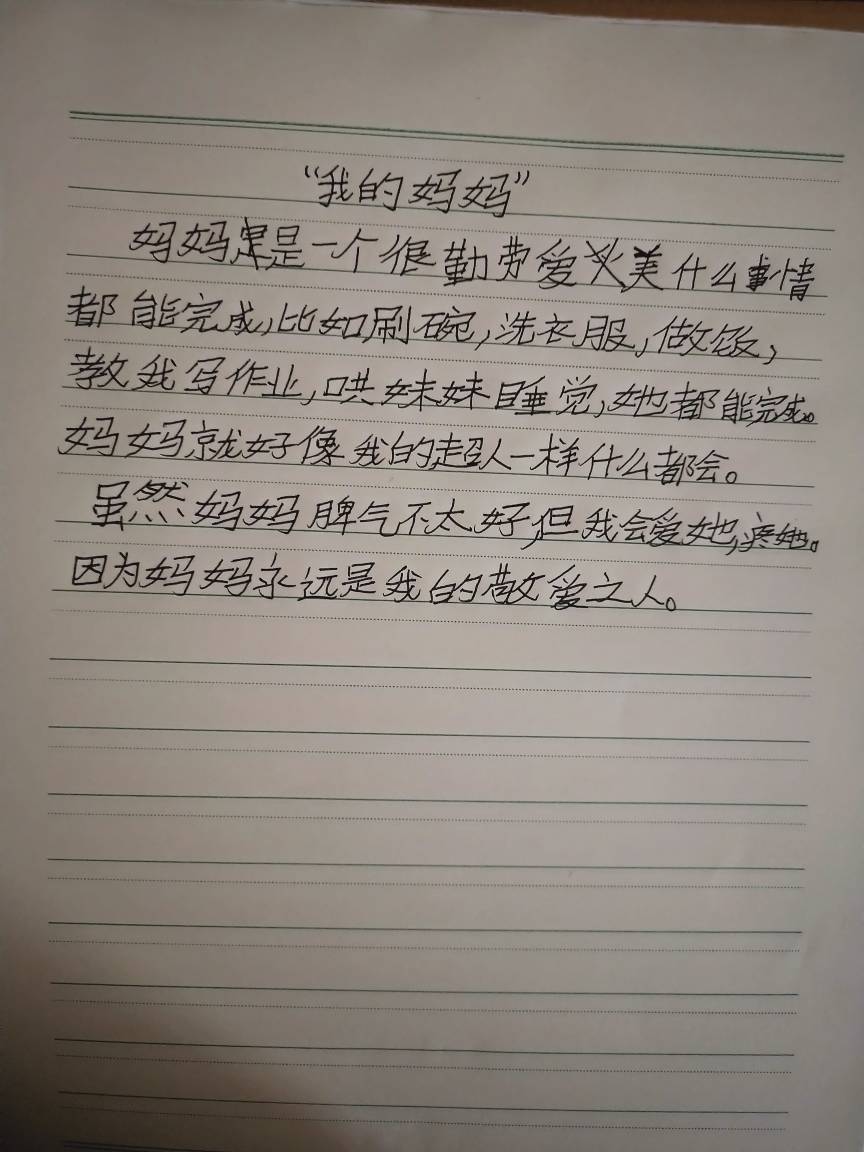 “我的妈妈”
妈妈是一个很勤劳爱美什么事情
都能完成,比如刷碗,洗衣服,做饭,
教我写作业,哄妹妹睡觉,她都能完成。
妈妈就好像我的超人一样什么都会。
虽然妈妈脾气不太好,但我会爱她,疼她。
因为妈妈永远是我的敬爱之人。